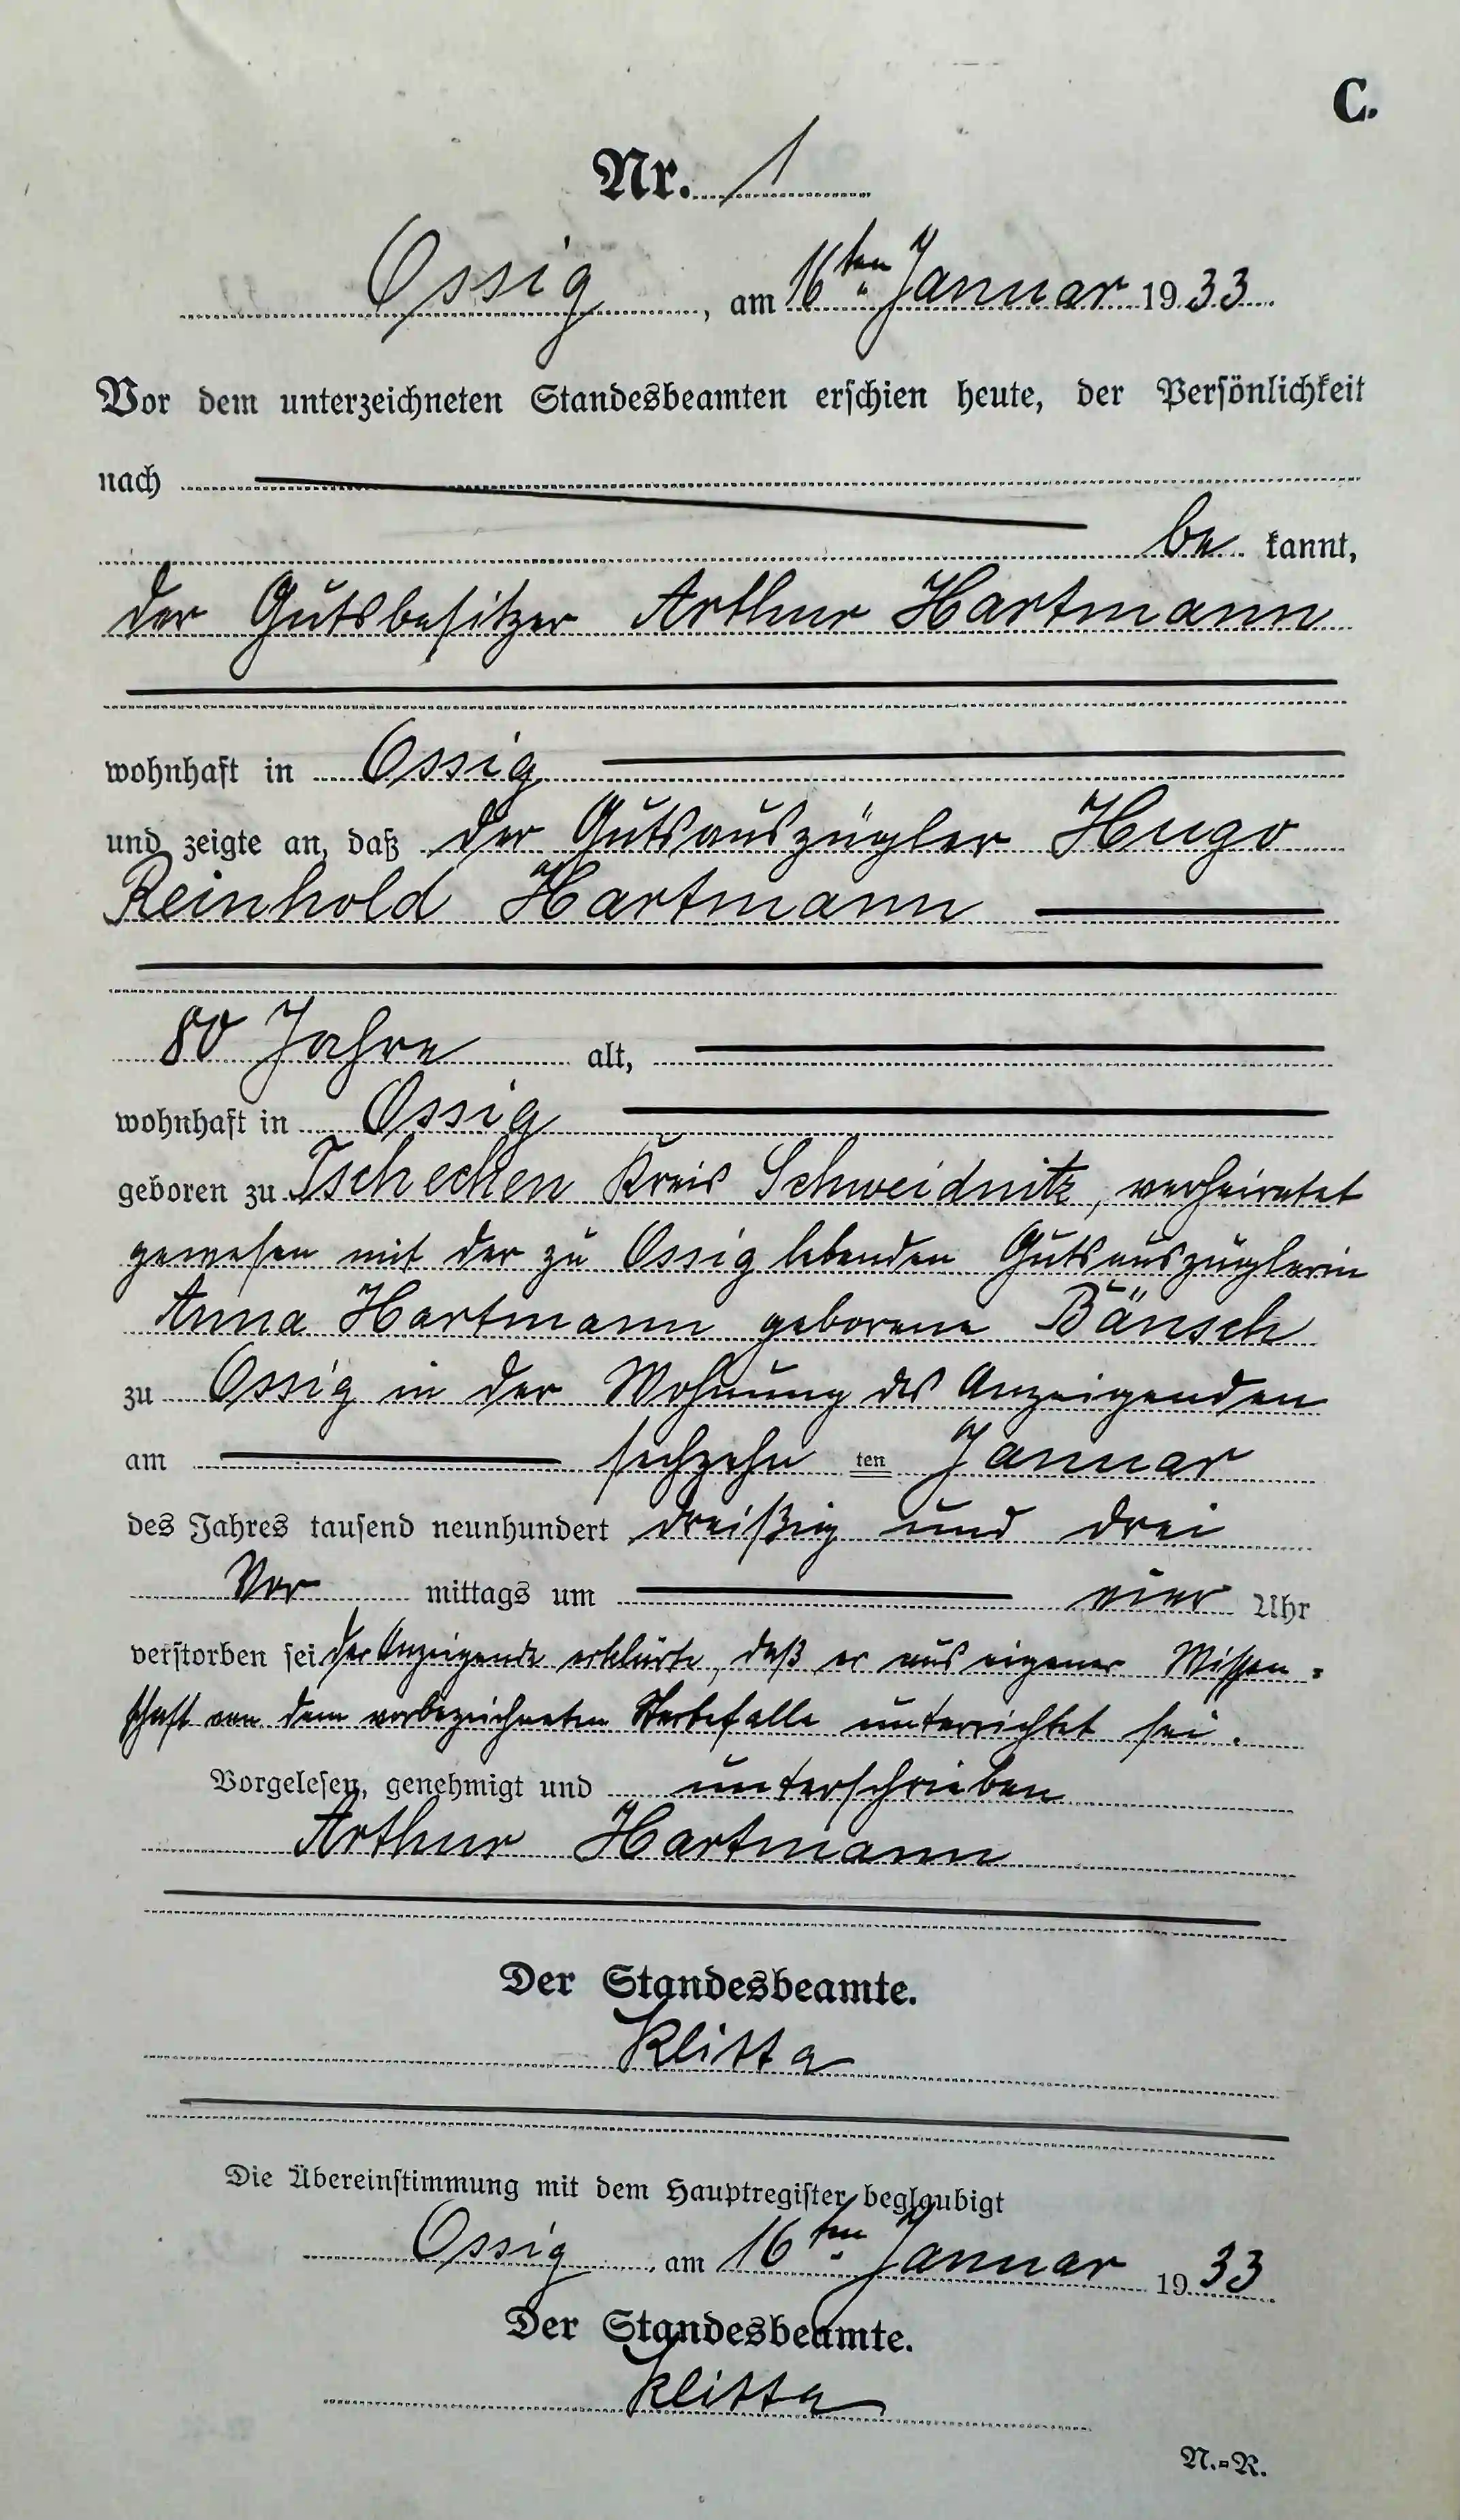 C.
Nr. 1
Ossig, am 16ten Januar 1933
Vor dem unterzeichneten Standesbeamten erschien heute, der Persönlichkeit
nach
be kannt,
der Gutsbesitzer Arthur Hartmann
wohnhaft in Ossig
und zeigte an, daß der Gutsauszügler Hugo
Reinhold Hartmann
80 Jahre alt,
wohnhaft in Ossig
geboren zu Tschechen Kreis Schweidnitz, verheiratet
gewesen mit der zu Ossig lebenden Gutsauszüglerin
Anna Hartmann geborene Bänsch
zu Ossig in der Wohnung des Anzeigenden
am sechzehn ten Januar
des Jahres tausend neunhundert dreißig und drei
Vor mittags um vier Uhr
verstorben sei. Der Anzeigende erklärte, daß er aus eigener Wissen-
schaft von dem vorbezeichneten Sterbefalle unterrichtet sei.
Vorgelesen, genehmigt und unterschrieben
Arthur Hartmann
Der Standesbeamte.
Klitta
Die Übereinstimmung mit dem Hauptregister beglaubigt
Ossig, am 16ten Januar 1933
Der Standesbeamte.
Klitta
N.-R.